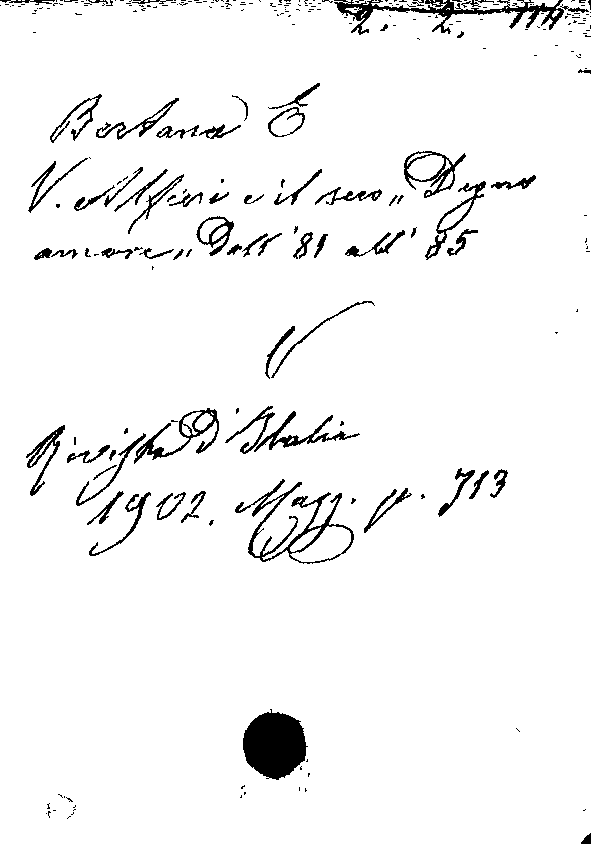 2. 2.
Bertana E
V. Alfieri e il suo „ Degno
amore „ Dall' 81 all' 85
V
Rivista D' Italia
1902. Magg. p. 713